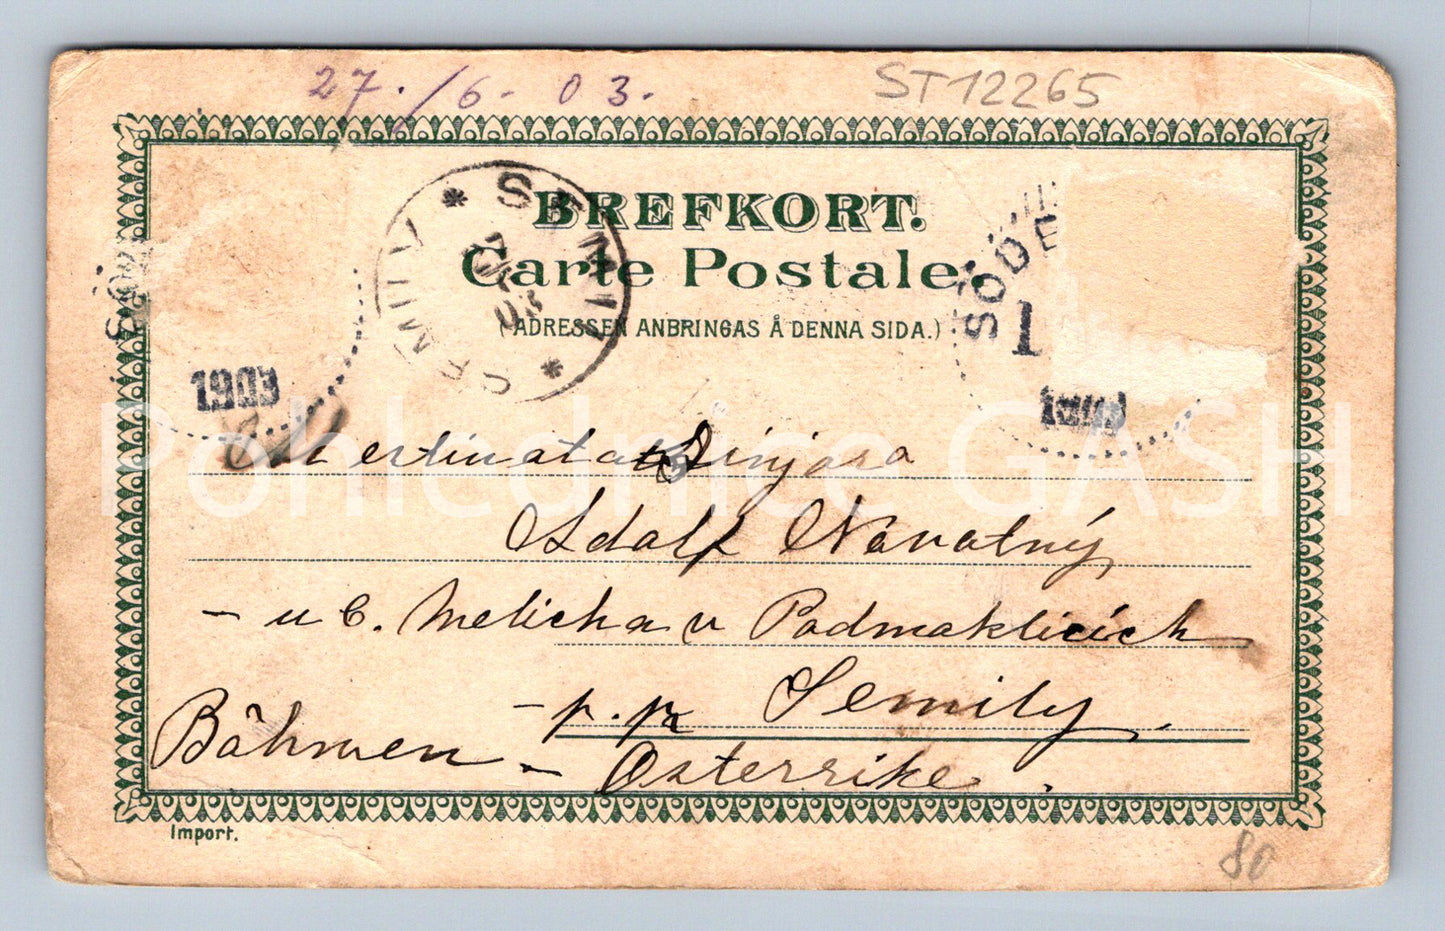 27./6. 03.
ST12265
BREFKORT.
Carte Postale.
(ADRESSEN ANBRINGAS Å DENNA SIDA.)
SEMIL * SEMILY *
7
03
1903
SÖDE
1
Pohlednice GASH
Adolf Návatný
- u C. Melicha v Podmoklicích
- p. p. Semily.
Böhmen - Österrike.
Import.
80